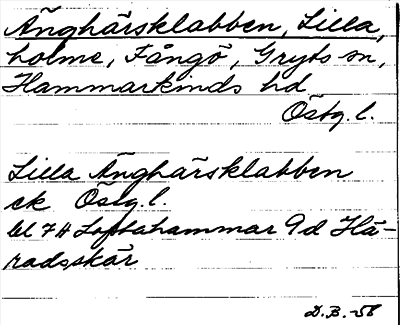 Änghärsklabben, Lilla,
holme, Fångö, Gryts sn,
Hammarkinds hd
Östg. l.
Lilla Änghärsklabben
ek Östg. l.
bl 7H Loftahammar 9d Hä-
radsskär
D.B. -56